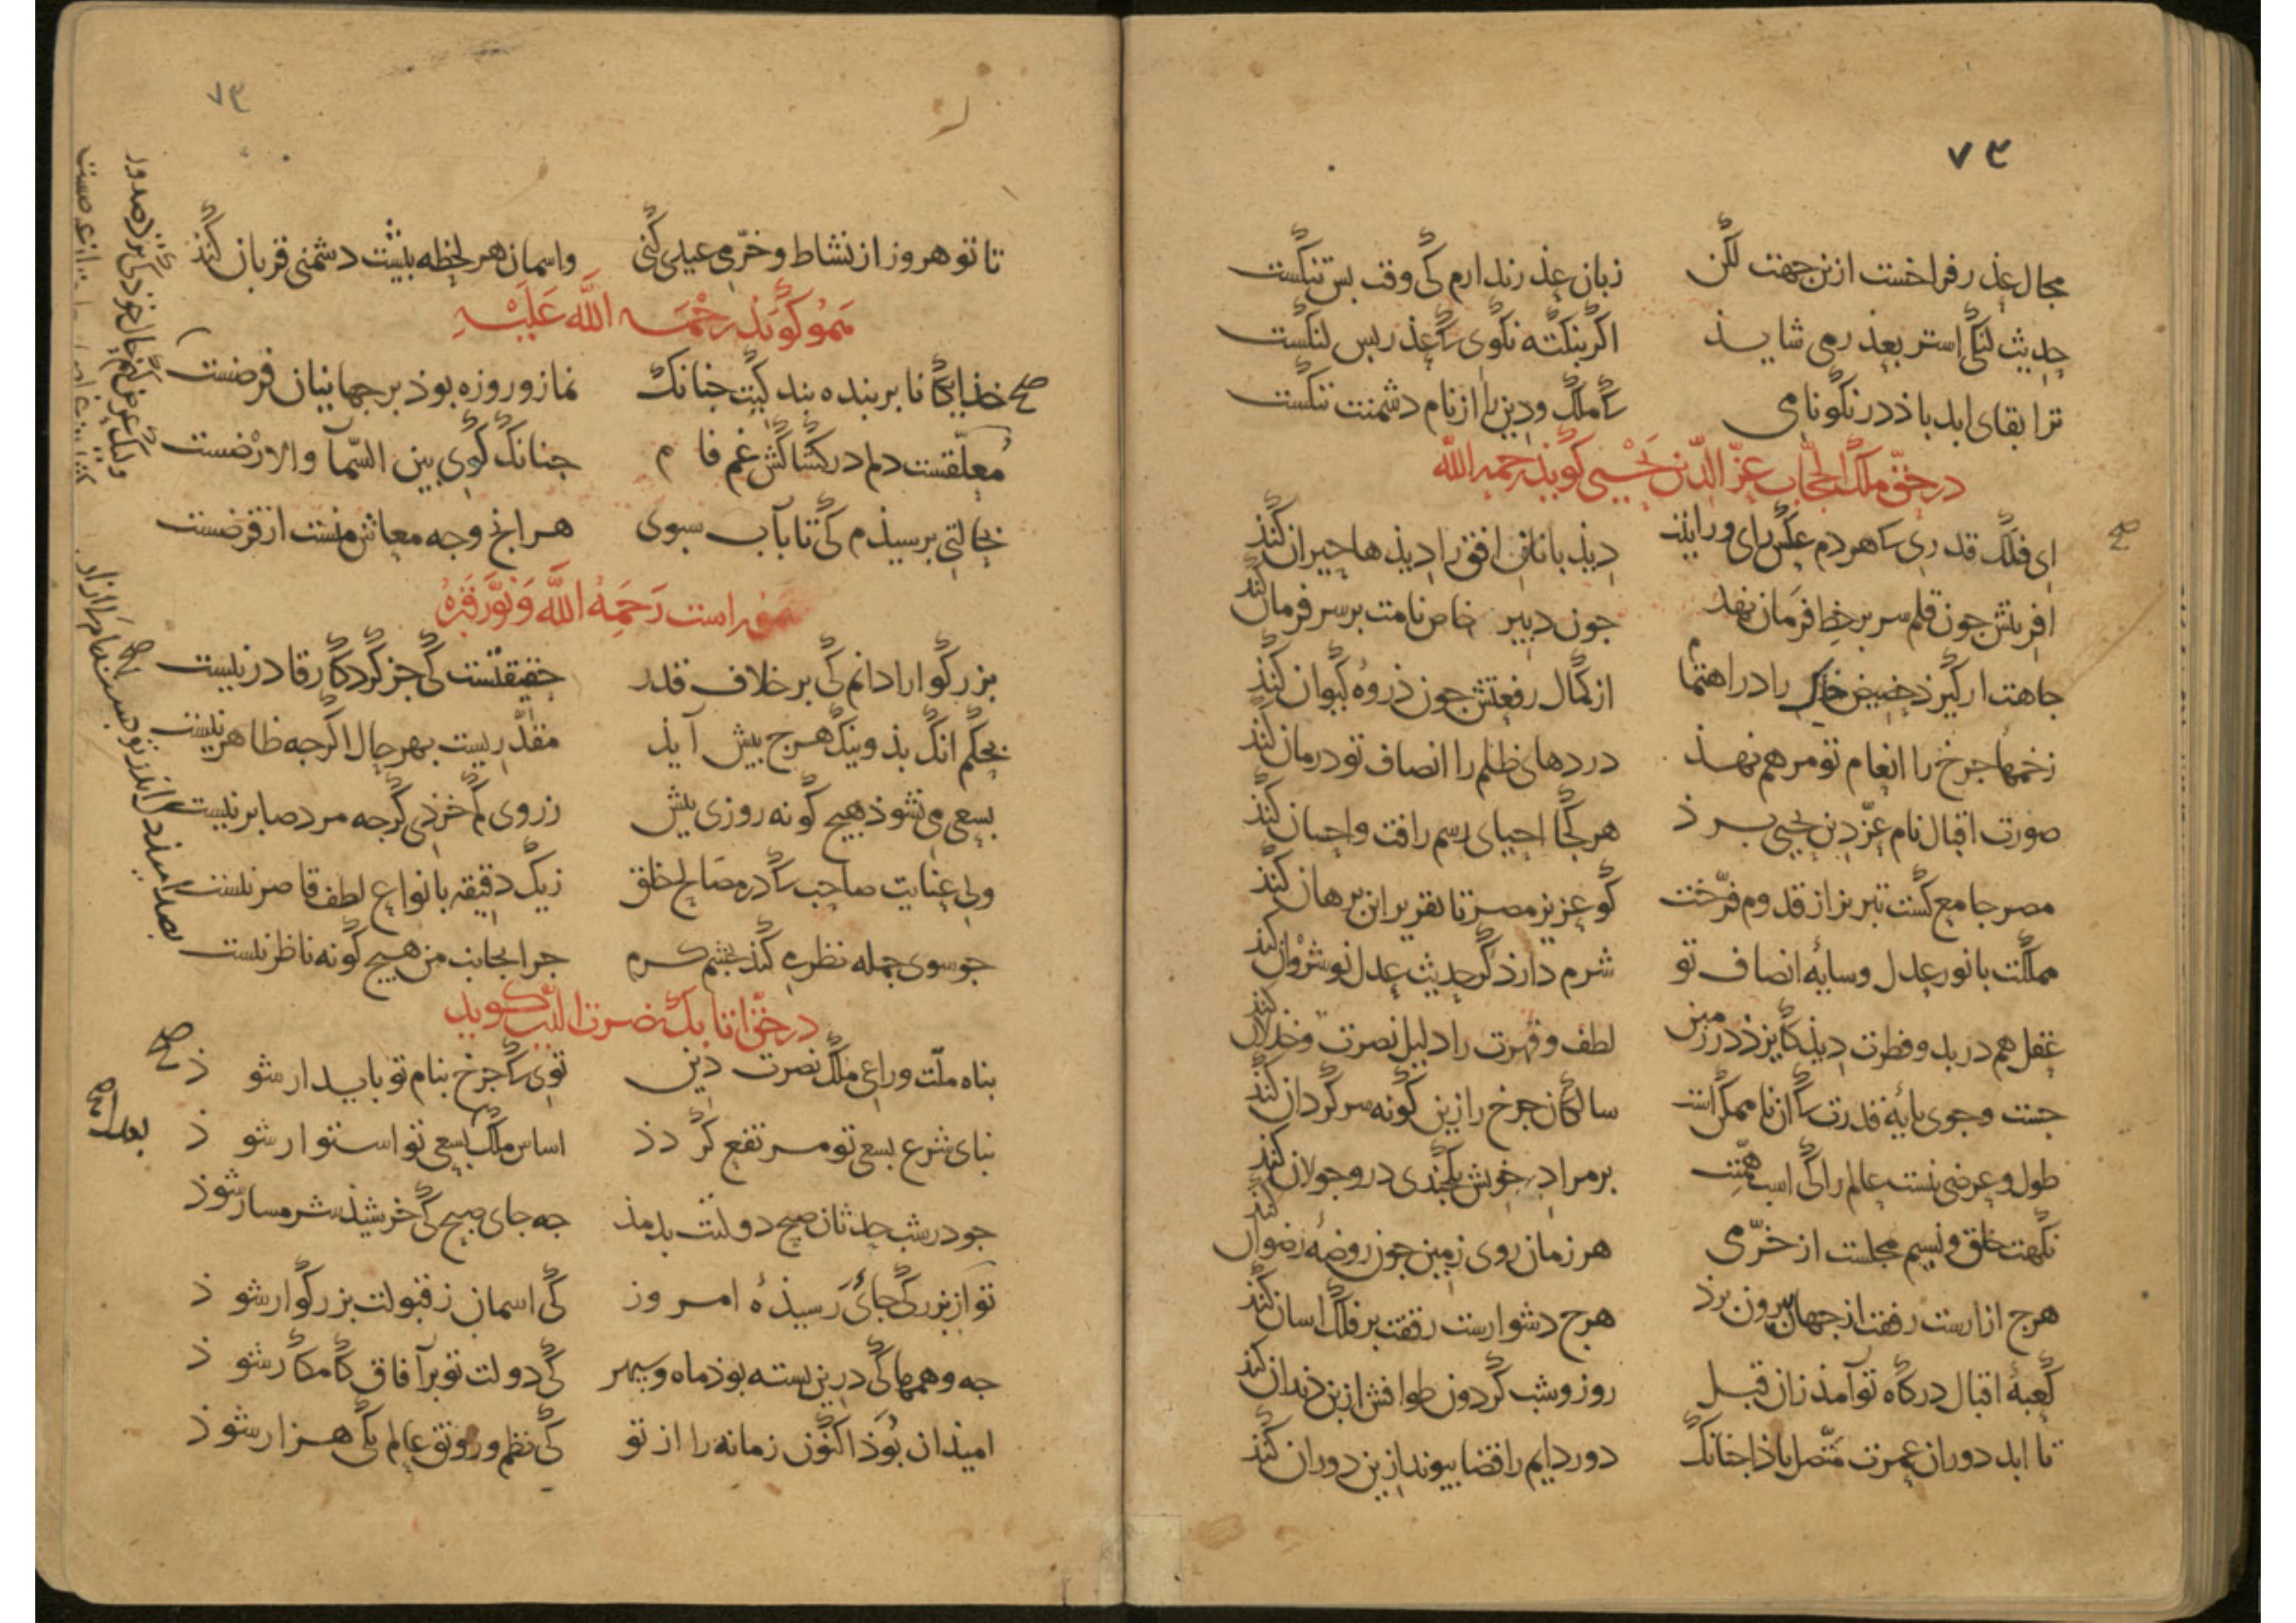 ۷۳
مجال عذر فراخست ازین جهت لکن زبان عذر ندارم کی وقت بس تنکست
حدیث لنکی استر بعذر می شاید اکر بنکته نکوی که عذر بس لنکست
ترا بقای ابد باذ در نکونامی که ملک ودین را از نام دشمنت ننکست
در حق ملک الحجاب عز الدین یحیی کوید رحمه الله
ای فلک قدری که هردم عکس رای ورایتت دیذبانان افق را دیذها حیران کند
افرینش جون قلم سر بر خط فرمان نهد جون دبیر خاص نامت بر سر فرمان کند
جاهت ار کیرد حضیض خاک را در اهتمام از کمال رفعتش جون ذروه کیوان کند
زخمهاء جرخ را انعام تو مرهم نهذ دردهای ظلم را انصاف تو درمان کند
صورت اقبال نام عز دین یحیی برذ هر کجا احیای رسم رافت واحسان کند
مصر جامع کشت تبریز از قدوم فرخت کو عزیز مصر تا تقریر این برهان کند
مملکت با نور عدل وسایه انصاف تو شرم دارذ کر حدیث عدل نوشروان کند
عقل هم در بدو فطرت دیذ کایزد در زمین لطف وقهرت را دلیل نصرت وخذلان کند
جست وجوی پایه قدرت که ان ناممکن است سالکان جرخ را زین کونه سرکردان کند
طول وعرضی نیست عالم را کی اسب همتت بر مراد خویش یکجندی درو جولان کند
نکهت خلق ونسیم مجلست از خرمی هر زمان روی زمین جون روضه رضوان کند
هرج ازارست رفقت از جهان بیرون برذ هرج دشوارست رفقت بر فلک اسان کند
کعبه اقبال درکاه تو آمذ زان قبل روز وشب کردون طوافش از بن دندان کند
تا ابد دوران عمرت متصل باذا جنانک دور دایم را قضا پیوند ازین دوران کند
۷۳
تا تو هر روز از نشاط وخرمی عیدی کنی واسمان هر لحظه بیشت دشمنی قربان کند
هموکوید رحمة الله علیه
صح خذایکانا بر بنده بندکیت جنانک نماز وروزه بوذ بر جهانیان فرضست
معلقست دلم در کشاکش غم فام جنانک کوی بین السماء والارضست
بحالتی برسیذم کی تا بآب سبوی هرانج وجه معاش منست از قرضست
هموراست رحمه الله ونور قبره
بزرکوارا دانم کی بر خلاف قدر حقیقتست کی جز کردکار قادر نیست
بحکم انک بذ ونیک هرج پیش آیذ مقدریست بهر حال اکرجه ظاهر نیست
بسعی می نشوذ هیج کونه روزی بیش ز روی کم خردی کرجه مرد صابر نیست
ولی عنایت صاحب که در مصالح خلق زیک دقیقه بانواع لطف قاصر نیست
جو سوی جمله نظر می کند بچشم کرم جرا بجانب من هیج کونه ناظر نیست
در حق اتابک نصرت الدین کوید
پناه ملت وراعی ملک نصرت دین توی که جرخ بنام تو پایدار شوذ صح
بنای شرع بسعی تو مرتفع کردذ اساس ملک بسعی تو استوار شوذ
جو در شب حدثان صبح دولتت بدمذ جه جای صبح کی خرشیذ شرمسار شوذ
تو از بزرکی جائی رسیذه امروز کی اسمان ز قبولت بزرکوار شوذ
جه وهمها کی درین بسته بوذ ماه وسپهر کی دولت تو بر آفاق کامکار شوذ
امیذ ان بوذ اکنون زمانه را از تو کی نظم ورونق عالم یکی هزار شوذ